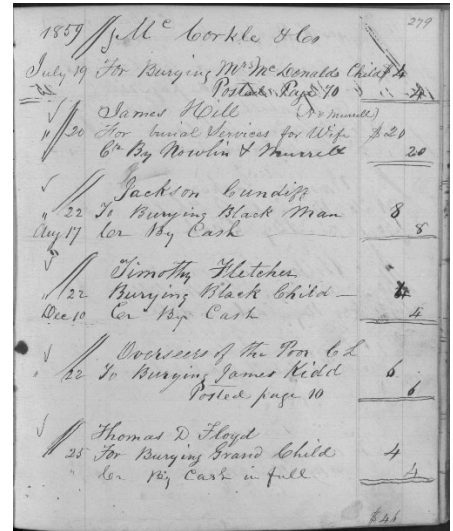 279
1859 J Mc Corkle & Co
July 19 For Burying Mrs McDonalds Child $4
Posted Page 70 " 4
James Hill (N & Murrell)
" 20 For burial Services for Wife $20
Cr By Nowlin & Murrell 20
Jackson Cundiff
" 22 To Burying Black Man 8
Aug 17 Cr By Cash 8
Timothy Fletcher
" 22 Burying Black Child — 4
Dec 10 Cr By Cash 4
Overseers of the Poor C L
" 22 To Burying James Kidd 6
Posted page 10 6
Thomas D Floyd
" 25 For Burying Grand Child 4
Cr By Cash in full 4
$46